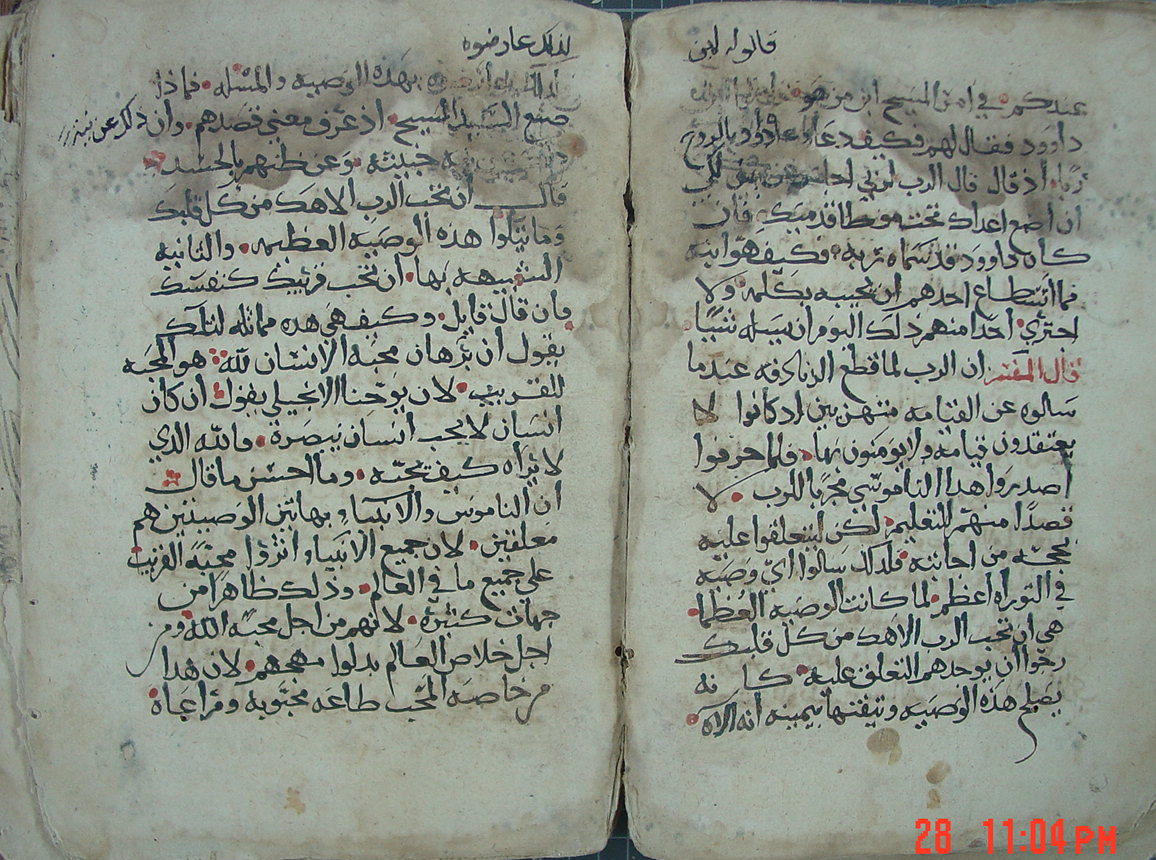 قالوا له ابن
عندكم في امر المسيح ابن من هو
داوود فقال لهم فكيف دعا داوود بالروح
ربا اذ قال قال الرب لربي اجلس عن يميني الي
ان اضع اعداك تحت موطا قدميك فان
كان داوود قد سماه ربه فكيف هو ابنه
فما استطاع احدهم ان يجيبه بكلمه ولا
اجتري احدا منهم ذلك اليوم ان يسيله شيا
قال المفسر ان الرب لما قطع الزنادقه عندما
سالوه عن القيامه منتهزيين اذ كانوا لا
يعتقدون قيامه ولا يومنون بها فلما
اصدروا هذا الناموسي مجربا للرب لا
قصدا منهم للتعليم لكن ليتعلقوا عليه
بحجه من اجابته فلذلك سالوا اي وصيه
في التوراه اعظم لما كانت الوصيه العظما
هي ان تحب الرب الاهك من كل قلبك
رجوا ان يوجدهم التعلق عليه كانه
يصلح هذه الوصيه وتيقنها بيمينه انه الاه
لذلك عارضوه
بهذه الوصيه والمسله فماذا
صنع السيد المسيح اذ عرف معني قصدهم وان ذلك عن نية
خبيثه وعن ظنهم بالحسد
قال ان تحب الرب الاهك من كل قلبك
وما يتلوا هذه الوصيه العظيمه والثانيه
الشبيهه بها ان تحب قريبك كنفسك
فان قال قايل وكيف هي هذه مماثله لتلك
يقول ان برهان محبة الانسان لله هو المحبه
للقريب لان يوحنا الانجيلي يقول ان كان
انسان لا يحب انسان يبصره فالله الذي
لا يراه كيف يحبه وما احسن ما قال
ان الناموس والانبياء بهاتين الوصيتين هم
معلقين لان جميع الانبياء اثروا محبة القريب
علي جميع ما في العالم وذلك ظاهرا من
جهات كثيره لانهم من اجل محبة الله ومن
اجل خلاص العالم بدلوا مهجهم لان هذا
من خاصه المحب طاعه محبوبه ومراعاة